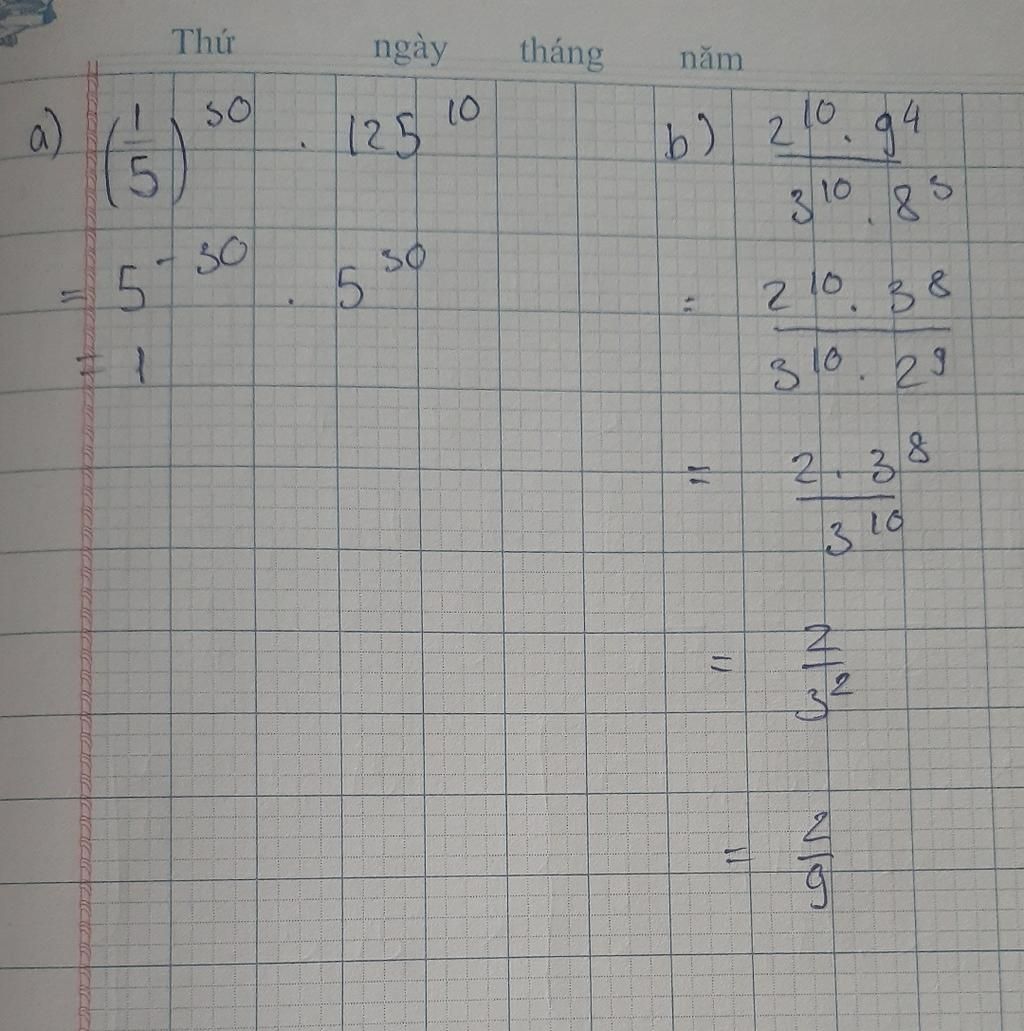 Thứ ngày tháng năm
a) (1/5)^30 . 125^10
= 5^-30 . 5^30
= 1
b) 2^10 . 9^4 / 3^10 . 8^3
= 2^10 . 3^8 / 3^10 . 2^9
= 2 . 3^8 / 3^10
= 2 / 3^2
= 2 / 9